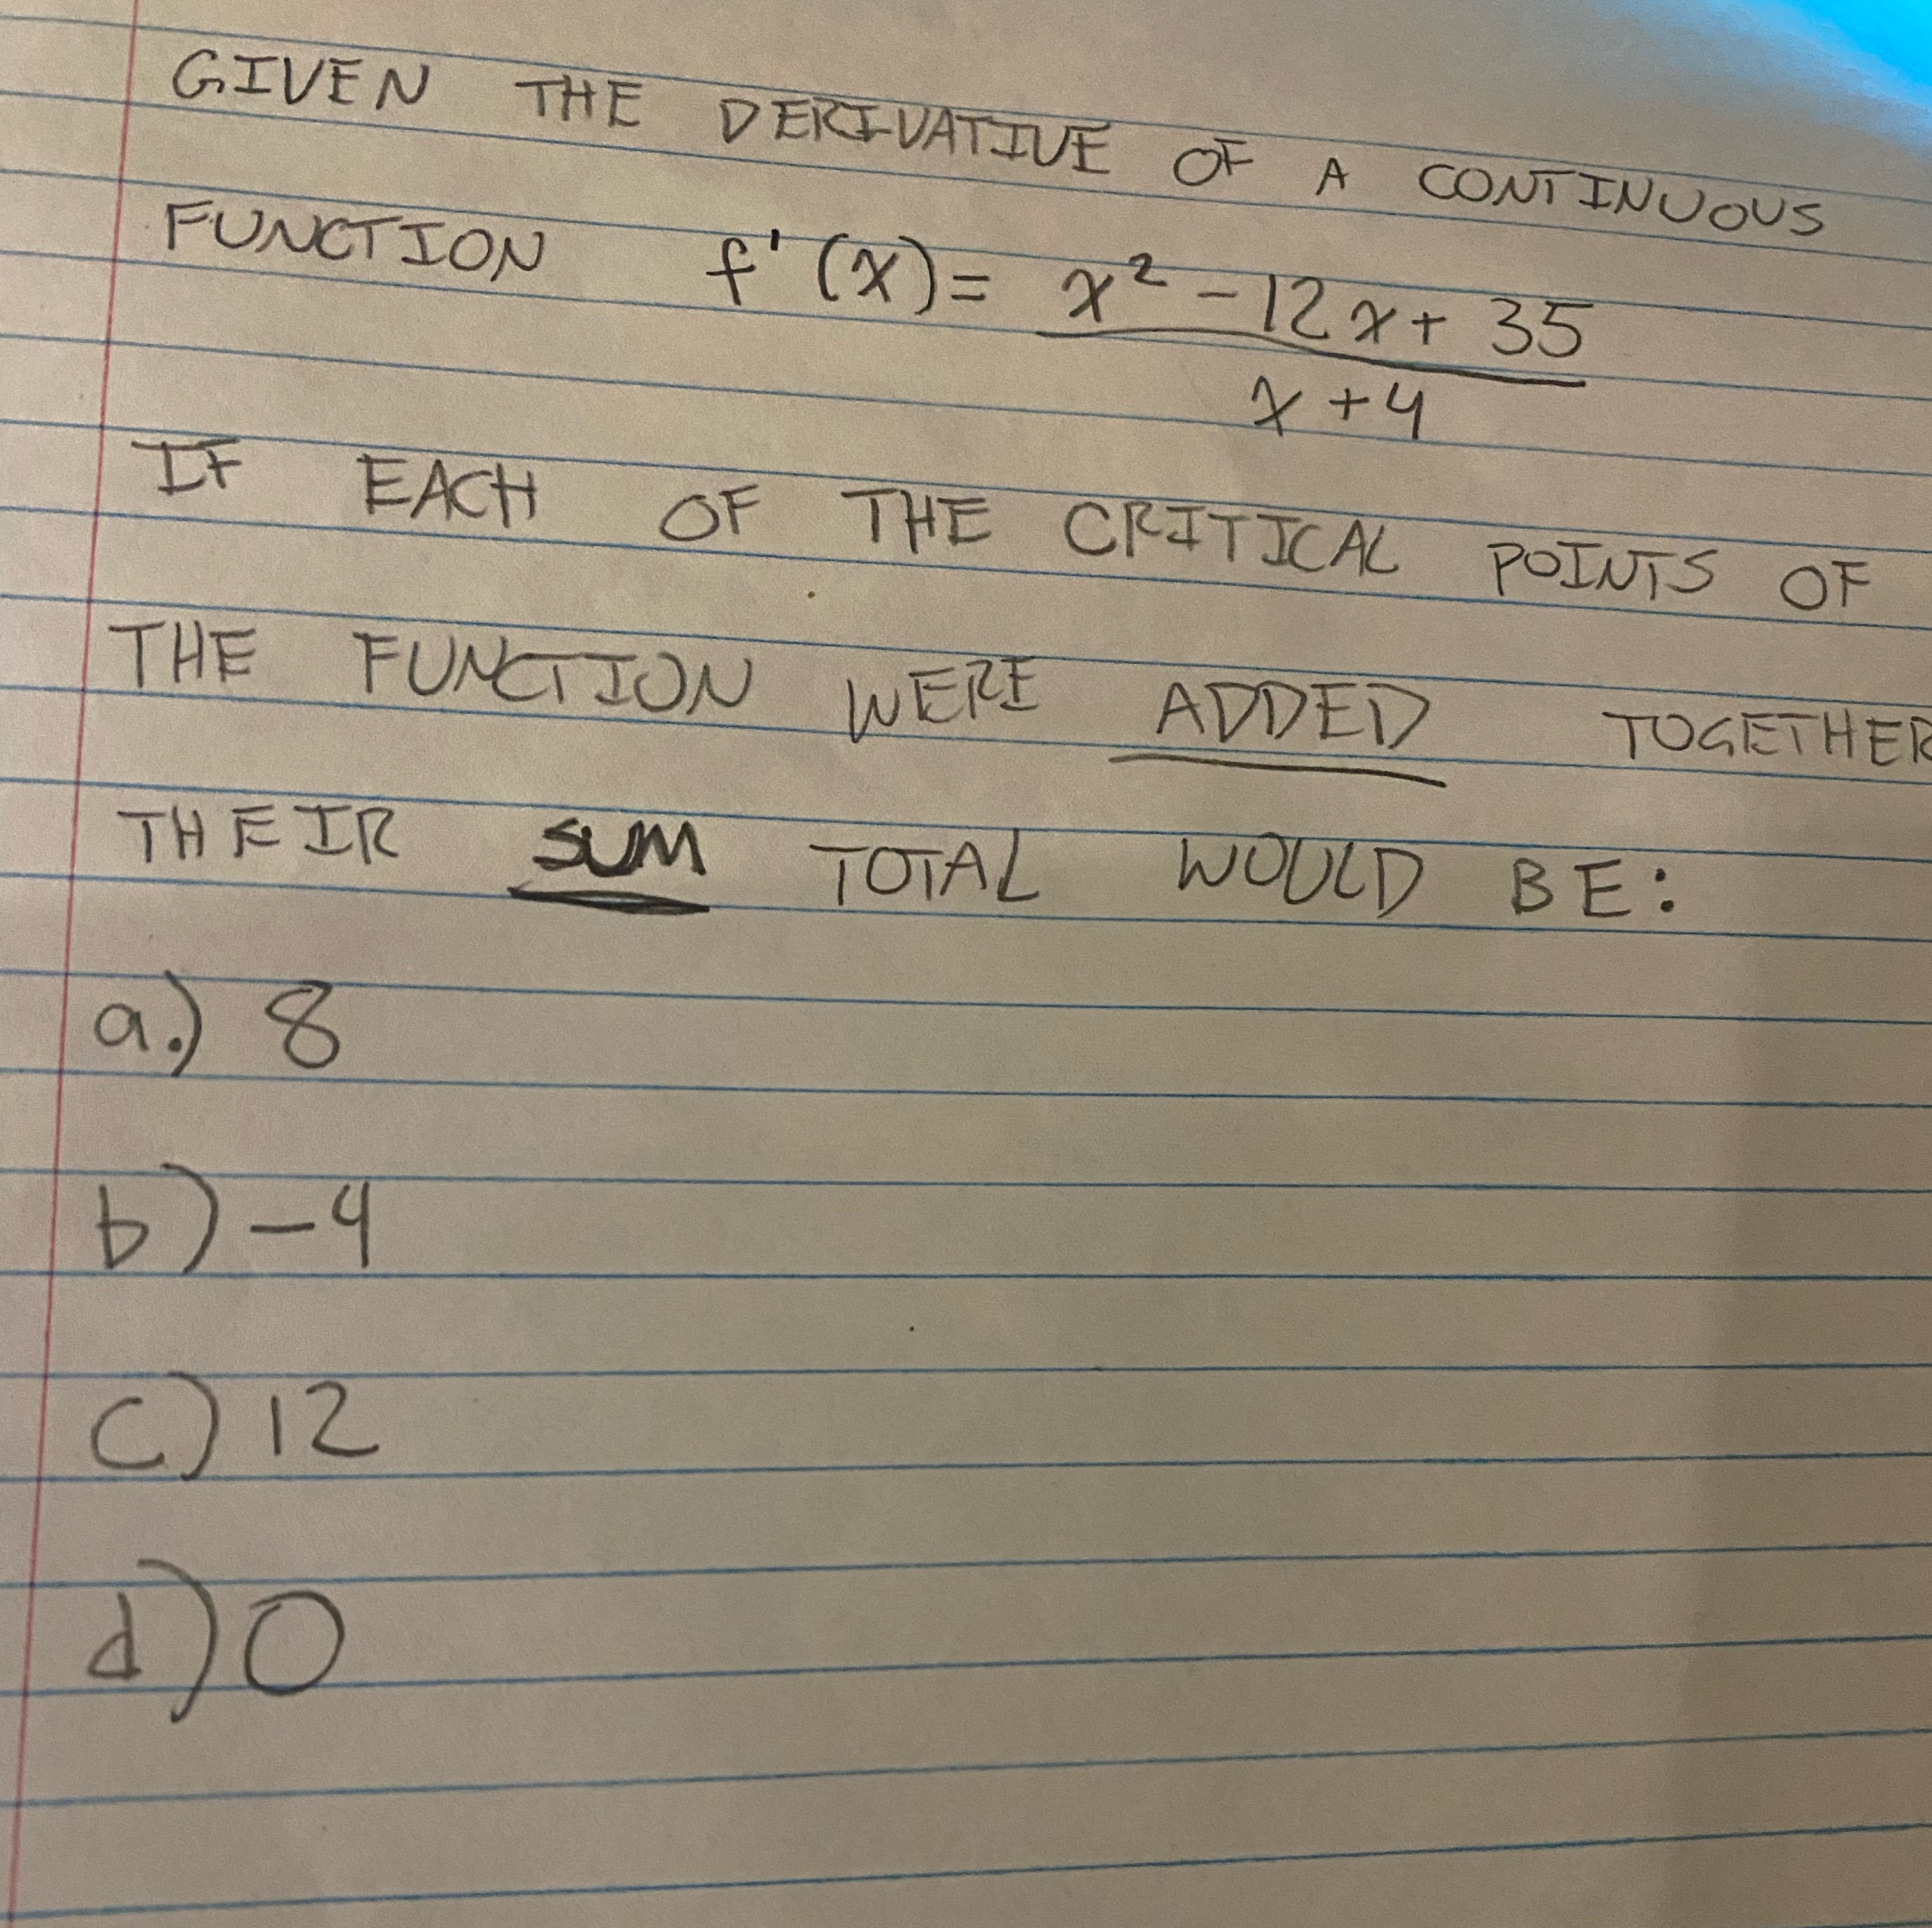 GIVEN THE DERIVATIVE OF A CONTINUOUS
FUNCTION f'(x) = x² - 12x + 35
x + 4
IF EACH OF THE CRITICAL POINTS OF
THE FUNCTION WERE ADDED TOGETHER
THEIR SUM TOTAL WOULD BE:
a.) 8
b) -4
c) 12
d) 0